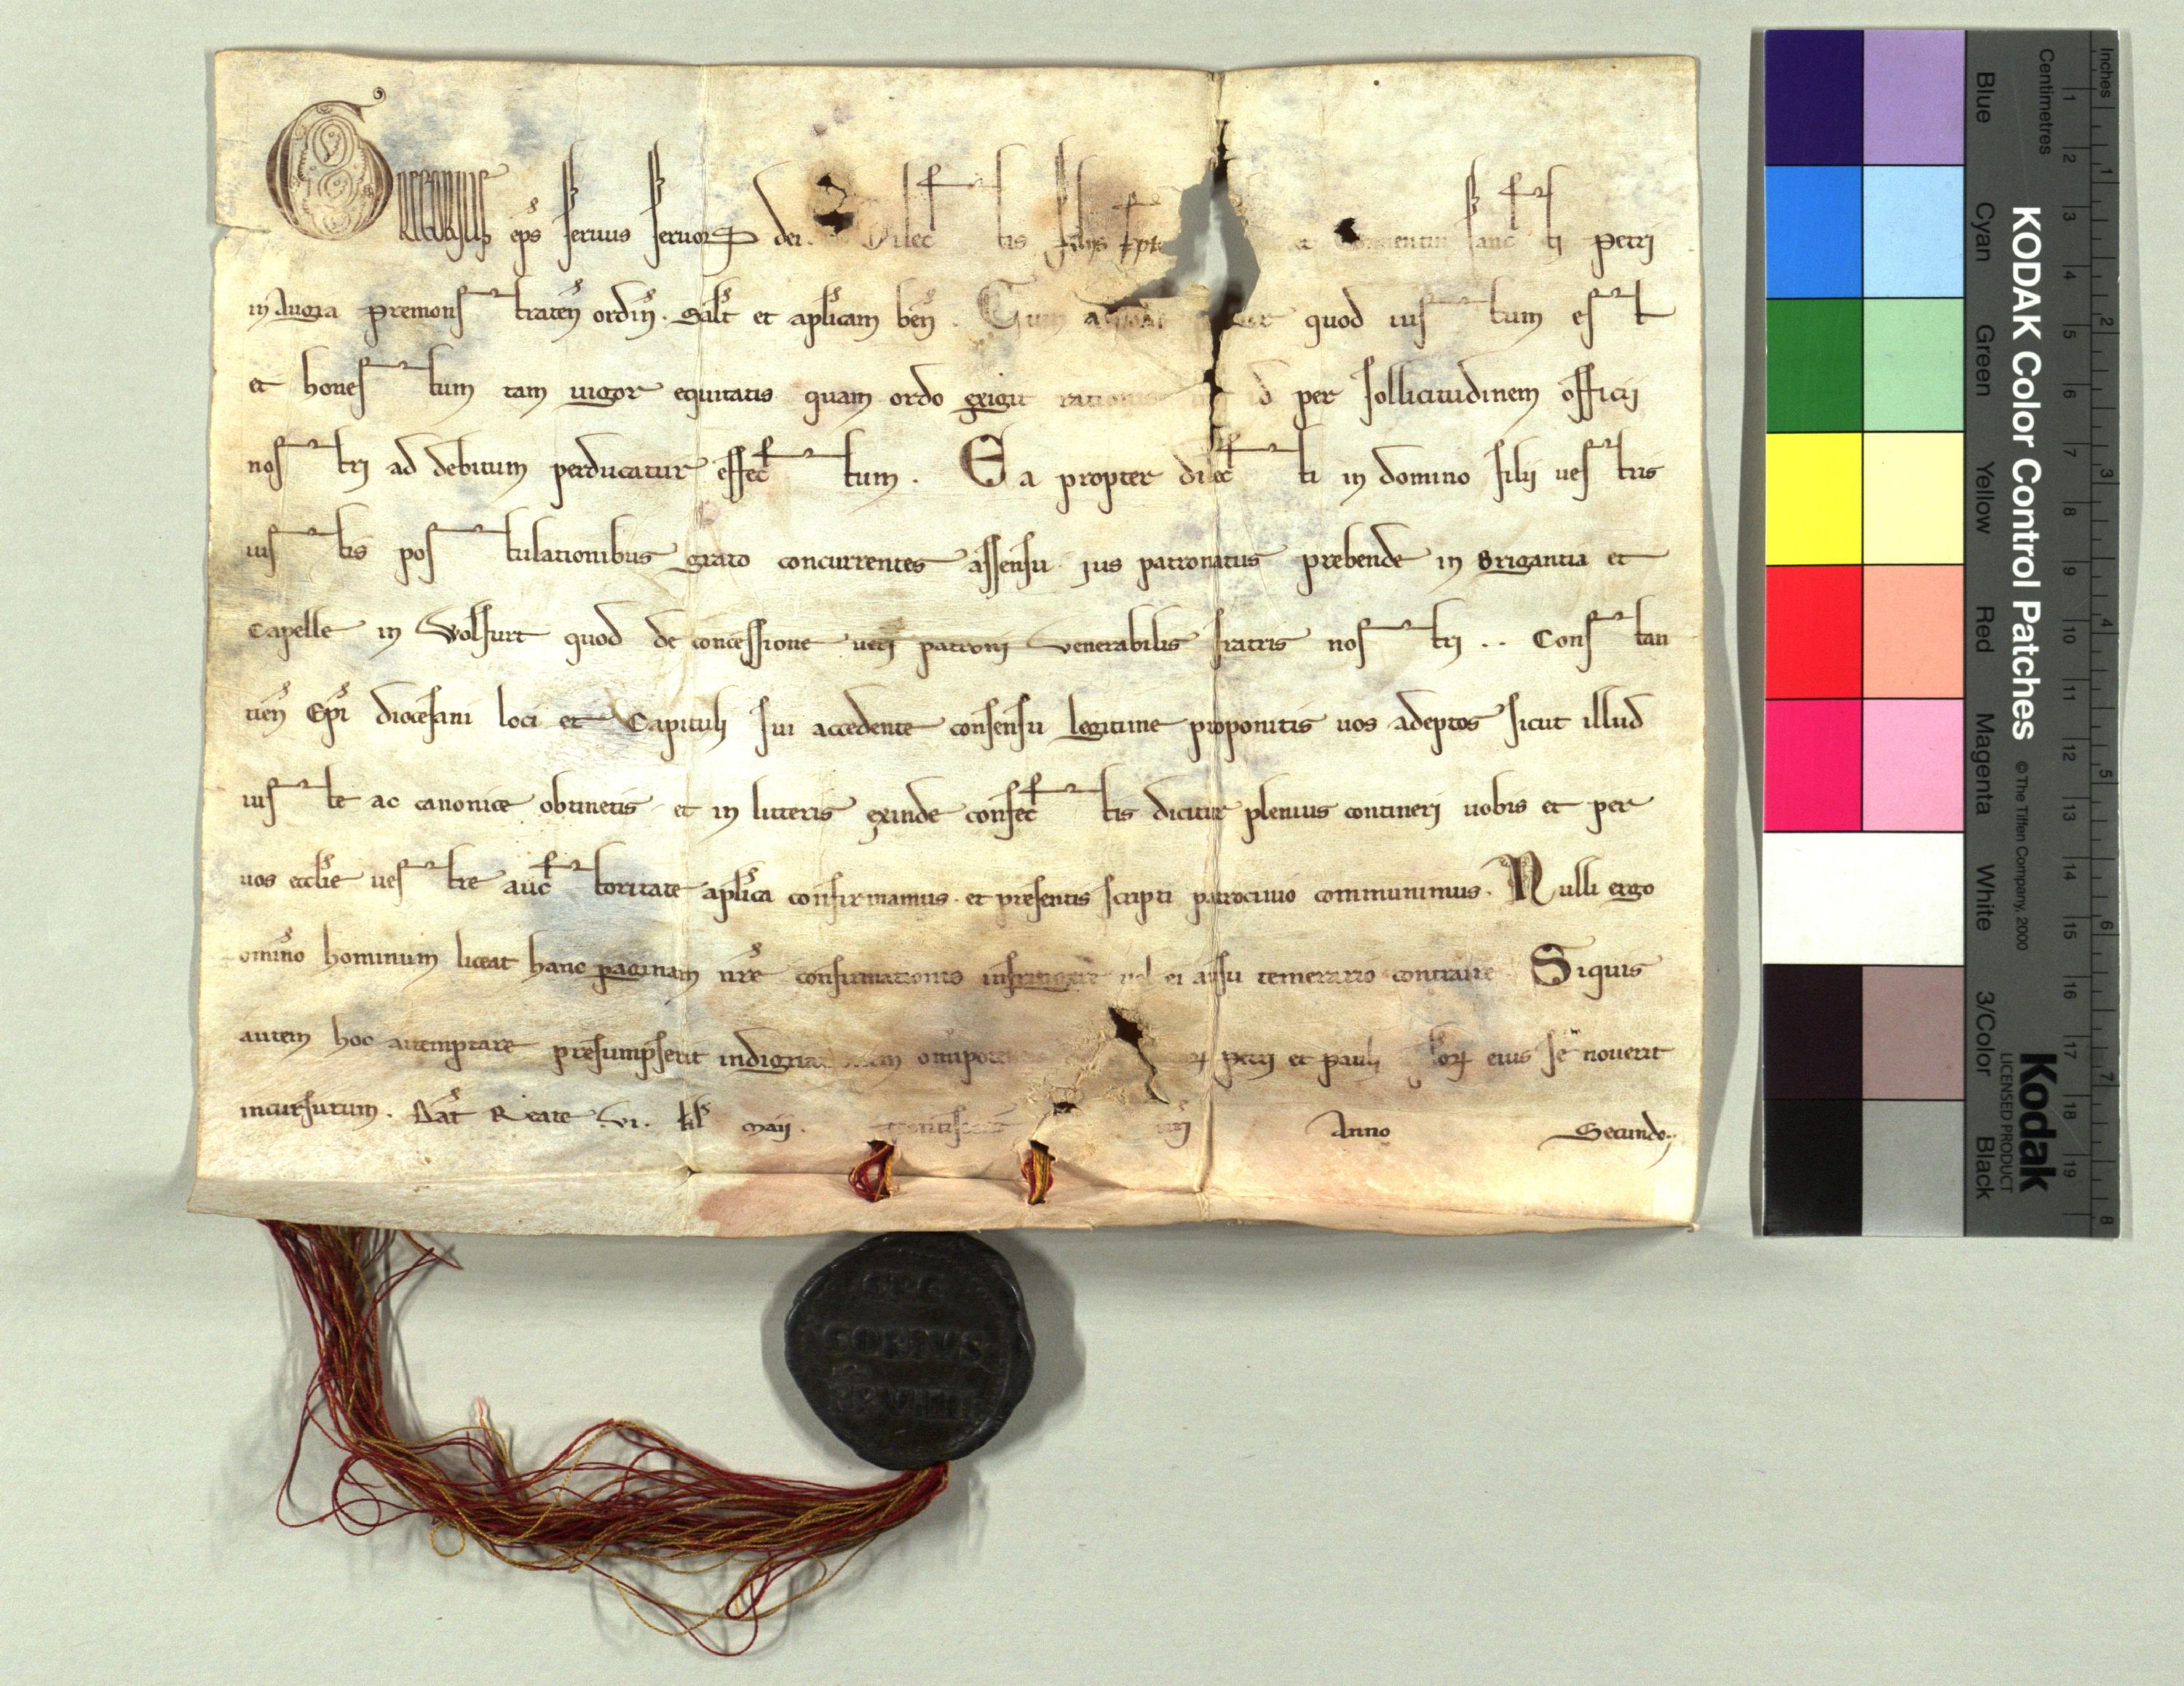 GREGORIUS eps seruus seruorų dei. Dilectis filiis et sancti Petri
in Augia Premonstraten ordin. Salt et aplicam ben. Cum a quod iustum est
et honestum tam uigor equitatis quam ordo exigit rationis ut id per sollicitudinem officij
nostri ad debitum perducatur effectum. Ea propter dilecti in domino filij uestris
iustis postulationibus grato concurrentes assensu ius patronatus prebende in Brigantia et
Capelle in Wolfurt quod de concessione ueri patroni Venerabilis fratris nostri .. Constan
tien Epi diocesani loci et Capituli sui accedente consensu legitime proponitis uos adeptos sicut illud
iuste ac canonice obtinetis et in litteris exinde confectis dicitur plenius contineri uobis et per
uos ecclie uestre auctoritate aplica confirmamus. et presentis scripti patrocinio communimus. Nulli ergo
omino hominum liceat hanc paginam nre confirmationis infringere uel ei ausu temerario contraire. Siquis
autem hoc attemptare presumpserit omnipote Petri et Pauli eius se nouerit
incursurum. Dat Reate VI. kl Maij. Anno Secundo.
GRE
GORIUS
PP VIIII
KODAK Color Control Patches
© The Tiffen Company, 2000
Kodak
LICENSED PRODUCT
Blue Cyan Green Yellow Red Magenta White 3/Color Black
Centimetres
1 2 3 4 5 6 7 8 9 10 11 12 13 14 15 16 17 18 19
Inches
1 2 3 4 5 6 7 8